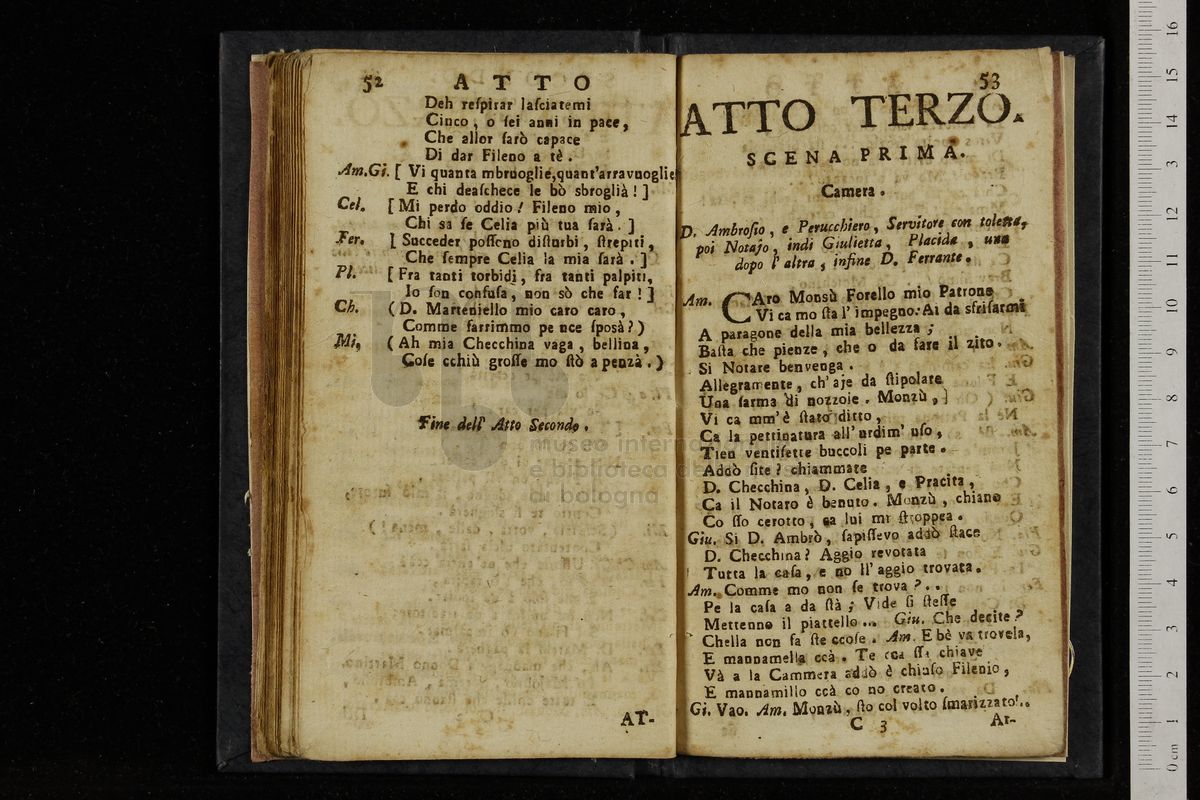 52 ATTO
Deh reſpirar laſciatemi
Cinco, o ſei anni in pace,
Che allor ſarò capace
Di dar Fileno a tè.
Am.Gi. [ Vi quanta mbruoglie,quant'arravuoglie
E chi deaſchece le bò sbroglià! ]
Cel. [ Mi perdo oddio! Fileno mio,
Chi sa ſe Celia più tua ſarà. ]
Fer. [ Succeder poſſeno diſturbi, ſtrepiti,
Che ſempre Celia la mia ſarà. ]
Pl. [ Fra tanti torbidi, fra tanti palpiti,
Io ſon confuſa, non sò che far! ]
Ch. ( D. Marteniello mio caro caro,
Comme farrimmo pe nce ſposà? )
Mi, ( Ah mia Checchina vaga, bellina,
Coſe cchiù groſſe mo ſtò a penzà. )
Fine dell' Atto Secondo.
museo internazionale
e biblioteca della
di bologna
AT-
53
ATTO TERZO.
SCENA PRIMA.
Camera.
D. Ambroſio, e Perucchiero, Servitore con toletta,
poi Notajo, indi Giulietta, Placida, una
dopo l' altra, infine D. Ferrante.
Am. CAro Monsù Forello mio Patrone
Vi ca mo ſta l' impegno: Ai da sfriſarmi
A paragone della mia bellezza;
Baſta che pienze, che o da fare il zito.
Si Notare benvenga.
Allegramente, ch' aje da ſtipolare
Una ſarma di nozzoie. Monzù,
Vi ca mm' è ſtato ditto,
Ca la pettinatura all' urdim' uſo,
Tien ventiſette buccoli pe parte.
Addò ſite? chiammate
D. Checchina, D. Celia, e Pracita,
Ca il Notaro è benuto. Monzù, chiano
Co ſſo cerotto, ca lui mi ſtroppea.
Giu. Si D. Ambrò, ſapiſſevo addò ſtace
D. Checchina? Aggio revotata
Tutta la caſa, e no ll' aggio trovata.
Am. Comme mo non ſe trova?..
Pe la caſa a da ſtà; Vide ſi ſteſſe
Mettenno il piattello... Giu. Che decite?
Chella non fa ſte ccoſe. Am. E bè va trovela,
E mannamella ccà. Te cca ſſa chiave
Và a la Cammera addò è chiuſo Filenio,
E mannamillo ccà co no creato.
Gi. Vao. Am. Monzù, ſto col volto ſmarizzato!..
C 3 Ar-